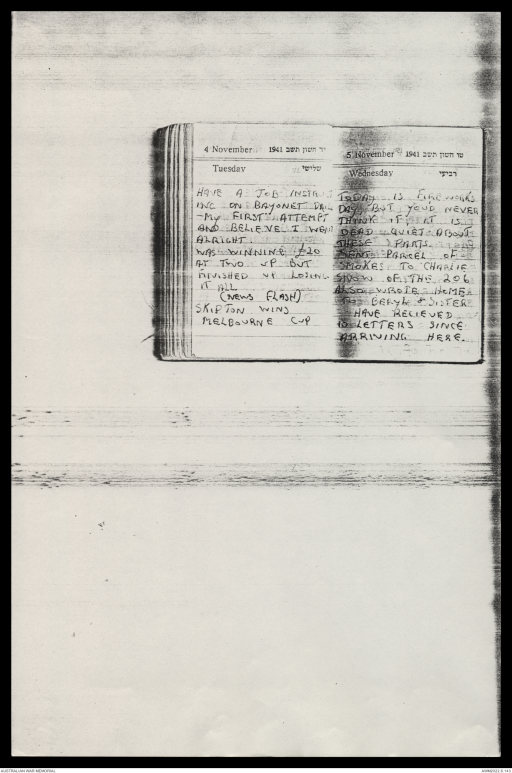 4 November 1941 יד חשון תשב
Tuesday שלישי
HAVE A JOB INSTRUCT
ING ON BAYONET DRILL
-MY FIRST ATTEMPT
AND BELIEVE I WENT
ALRIGHT.
WAS WINNING £20
AT TWO UP BUT
FINISHED UP LOSING
IT ALL
(NEWS FLASH)
SKIPTON WINS
MELBOURNE CUP
5 November 1941 טו חשון תשב
Wednesday רביעי
TODAY IS FIREWORKS
DAY BUT YOUD NEVER
THINK IT. IT IS
DEAD QUIET ABOUT
THESE PARTS.
SENT PARCEL OF
SMOKES TO CHARLIE
SNOW OF THE 206
ALSO WROTE HOME
TO BERYL & SISTER
HAVE RECIEVED
LETTERS SINCE
ARRIVING HERE.
AUSTRALIAN WAR MEMORIAL